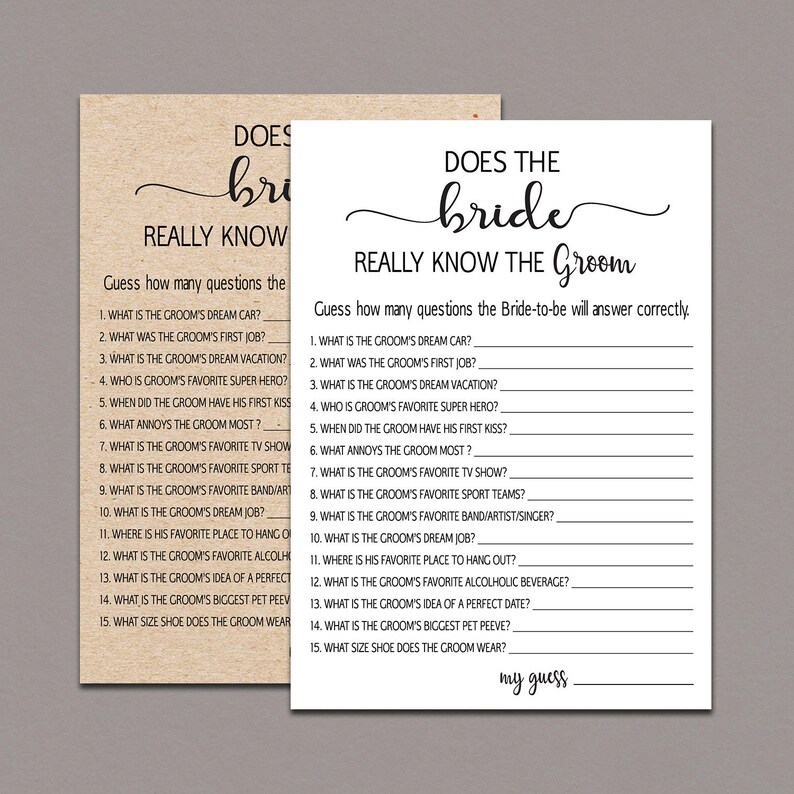 DOES
bri
REALLY KNOW
Guess how many questions the
1. WHAT IS THE GROOM'S DREAM CAR?
2. WHAT WAS THE GROOM'S FIRST JOB?
3. WHAT IS THE GROOM'S DREAM VACATION?
4. WHO IS GROOM'S FAVORITE SUPER HERO?
5. WHEN DID THE GROOM HAVE HIS FIRST KISS
6. WHAT ANNOYS THE GROOM MOST ?
7. WHAT IS THE GROOM'S FAVORITE TV SHOW
8. WHAT IS THE GROOM'S FAVORITE SPORT TE
9. WHAT IS THE GROOM'S FAVORITE BAND/ART
10. WHAT IS THE GROOM'S DREAM JOB?
11. WHERE IS HIS FAVORITE PLACE TO HANG OU
12. WHAT IS THE GROOM'S FAVORITE ALCOHO
13. WHAT IS THE GROOM'S IDEA OF A PERFECT
14. WHAT IS THE GROOM'S BIGGEST PET PEEV
15. WHAT SIZE SHOE DOES THE GROOM WEAR
DOES THE
bride
REALLY KNOW THE Groom
Guess how many questions the Bride-to-be will answer correctly.
1. WHAT IS THE GROOM'S DREAM CAR?
2. WHAT WAS THE GROOM'S FIRST JOB?
3. WHAT IS THE GROOM'S DREAM VACATION?
4. WHO IS GROOM'S FAVORITE SUPER HERO?
5. WHEN DID THE GROOM HAVE HIS FIRST KISS?
6. WHAT ANNOYS THE GROOM MOST ?
7. WHAT IS THE GROOM'S FAVORITE TV SHOW?
8. WHAT IS THE GROOM'S FAVORITE SPORT TEAMS?
9. WHAT IS THE GROOM'S FAVORITE BAND/ARTIST/SINGER?
10. WHAT IS THE GROOM'S DREAM JOB?
11. WHERE IS HIS FAVORITE PLACE TO HANG OUT?
12. WHAT IS THE GROOM'S FAVORITE ALCOLHOLIC BEVERAGE?
13. WHAT IS THE GROOM'S IDEA OF A PERFECT DATE?
14. WHAT IS THE GROOM'S BIGGEST PET PEEVE?
15. WHAT SIZE SHOE DOES THE GROOM WEAR?
my guess